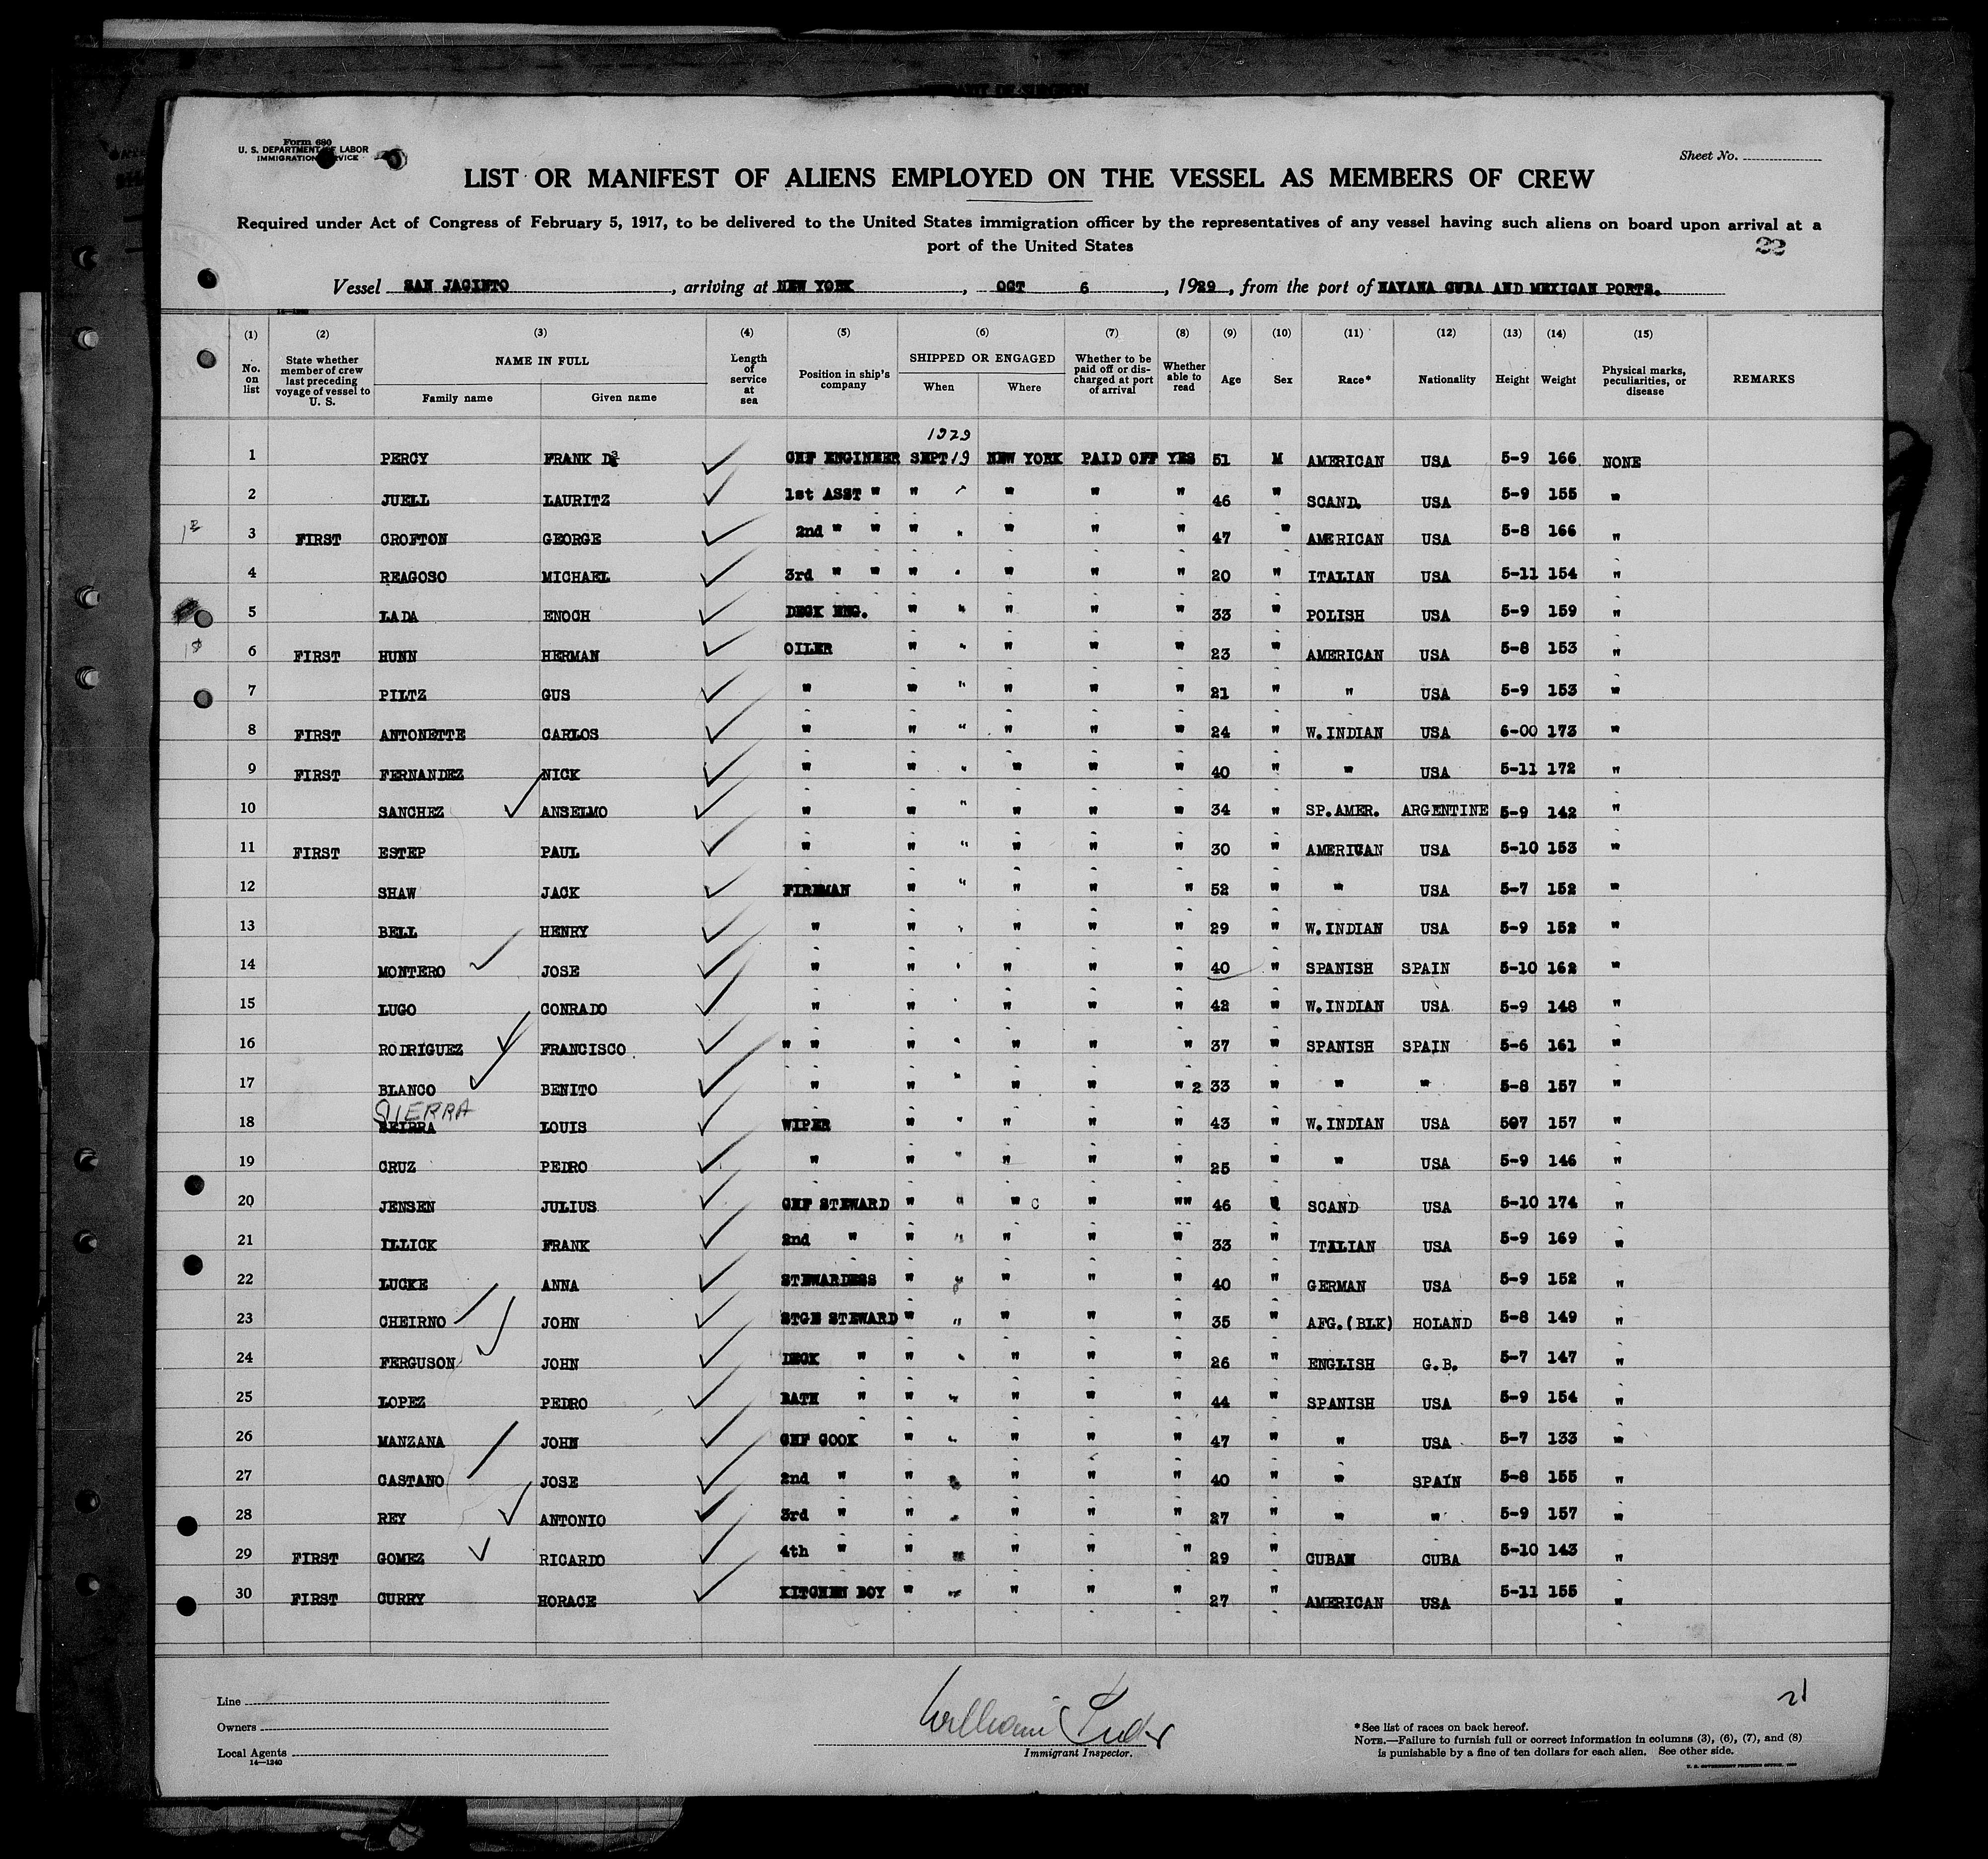 Form 680
U. S. DEPARTMENT OF LABOR
IMMIGRATION SERVICE
Sheet No.
LIST OR MANIFEST OF ALIENS EMPLOYED ON THE VESSEL AS MEMBERS OF CREW
Required under Act of Congress of February 5, 1917, to be delivered to the United States immigration officer by the representatives of any vessel having such aliens on board upon arrival at a
port of the United States
22
Vessel SAN JACINTO, arriving at NEW YORK, OCT 6, 1929, from the port of HAVANA CUBA AND MEXICAN PORTS.
(1) (2) (3) (4) (5) (6) (7) (8) (9) (10) (11) (12) (13) (14) (15)
No. on list State whether member of crew last preceding voyage of vessel to U. S. NAME IN FULL Family name Given name Length of service at sea Position in ship's company SHIPPED OR ENGAGED When Where Whether to be paid off or discharged at port of arrival Whether able to read Age Sex Race* Nationality Height Weight Physical marks, peculiarities, or disease REMARKS
1929
1 PERCY FRANK D CHF ENGINEER SEPT 19 NEW YORK PAID OFF YES 51 M AMERICAN USA 5-9 166 NONE
2 JUELL LAURITZ 1st ASST " " " " " " 46 " SCAND. USA 5-9 155 "
3 FIRST CROFTON GEORGE 2nd " " " " " " " 47 " AMERICAN USA 5-8 166 "
4 REAGOSO MICHAEL 3rd " " " " " " " 20 " ITALIAN USA 5-11 154 "
5 LADA ENOCH DECK ENG. " " " " " 33 " POLISH USA 5-9 159 "
6 FIRST HUNN HERMAN OILER " " " " " 23 " AMERICAN USA 5-8 153 "
7 PILTZ GUS " " " " " " 21 " " USA 5-9 153 "
8 FIRST ANTONETTE CARLOS " " " " " " 24 " W.INDIAN USA 6-00 173 "
9 FIRST FERNANDEZ NICK " " " " " " 40 " " USA 5-11 172 "
10 SANCHEZ ANSELMO " " " " " " 34 " SP.AMER. ARGENTINE 5-9 142 "
11 FIRST ESTEP PAUL " " " " " " 30 " AMERICAN USA 5-10 153 "
12 SHAW JACK FIREMAN " " " " " 52 " " USA 5-7 152 "
13 BELL HENRY " " " " " " 29 " W.INDIAN USA 5-9 152 "
14 MONTERO JOSE " " " " " " 40 " SPANISH SPAIN 5-10 162 "
15 LUGO CONRADO " " " " " " 42 " W.INDIAN USA 5-9 148 "
16 RODRIGUEZ FRANCISCO. " " " " " " " 37 " SPANISH SPAIN 5-6 161 "
17 BLANCO BENITO " " " " " " 2 33 " " " 5-8 157 "
SIERRA
18 LOUIS WIPER " " " " " 43 " W.INDIAN USA 507 157 "
19 CRUZ PEDRO " " " " " " 25 " " USA 5-9 146 "
20 JENSEN JULIUS CHF STEWARD " " " C " "" 46 " SCAND USA 5-10 174 "
21 ILLICK FRANK 2nd " " " " " " 33 " ITALIAN USA 5-9 169 "
22 LUCKE ANNA STEWARDESS " " " " " 40 " GERMAN USA 5-9 152 "
23 CHEIRNO JOHN STGE STEWARD " " " " " 35 " AFG.(BLK) HOLAND 5-8 149 "
24 FERGUSON JOHN DECK " " " " " " 26 " ENGLISH G.B. 5-7 147 "
25 LOPEZ PEDRO BATH " " " " " " 44 " SPANISH USA 5-9 154 "
26 MANZANA JOHN CHF COOK " " " " " 47 " " USA 5-7 133 "
27 CASTANO JOSE 2nd " " " " " " 40 " " SPAIN 5-8 155 "
28 REY ANTONIO 3rd " " " " " " 27 " " " 5-9 157 "
29 FIRST GOMEZ RICARDO 4th " " " " " " 29 " CUBAN CUBA 5-10 143 "
30 FIRST CURRY HORACE KITCHEN BOY " " " " " 27 " AMERICAN USA 5-11 155 "
Line
Owners
Local Agents
14—1240
William
Immigrant Inspector.
21
*See list of races on back hereof.
NOTE.—Failure to furnish full or correct information in columns (3), (6), (7), and (8)
is punishable by a fine of ten dollars for each alien. See other side.